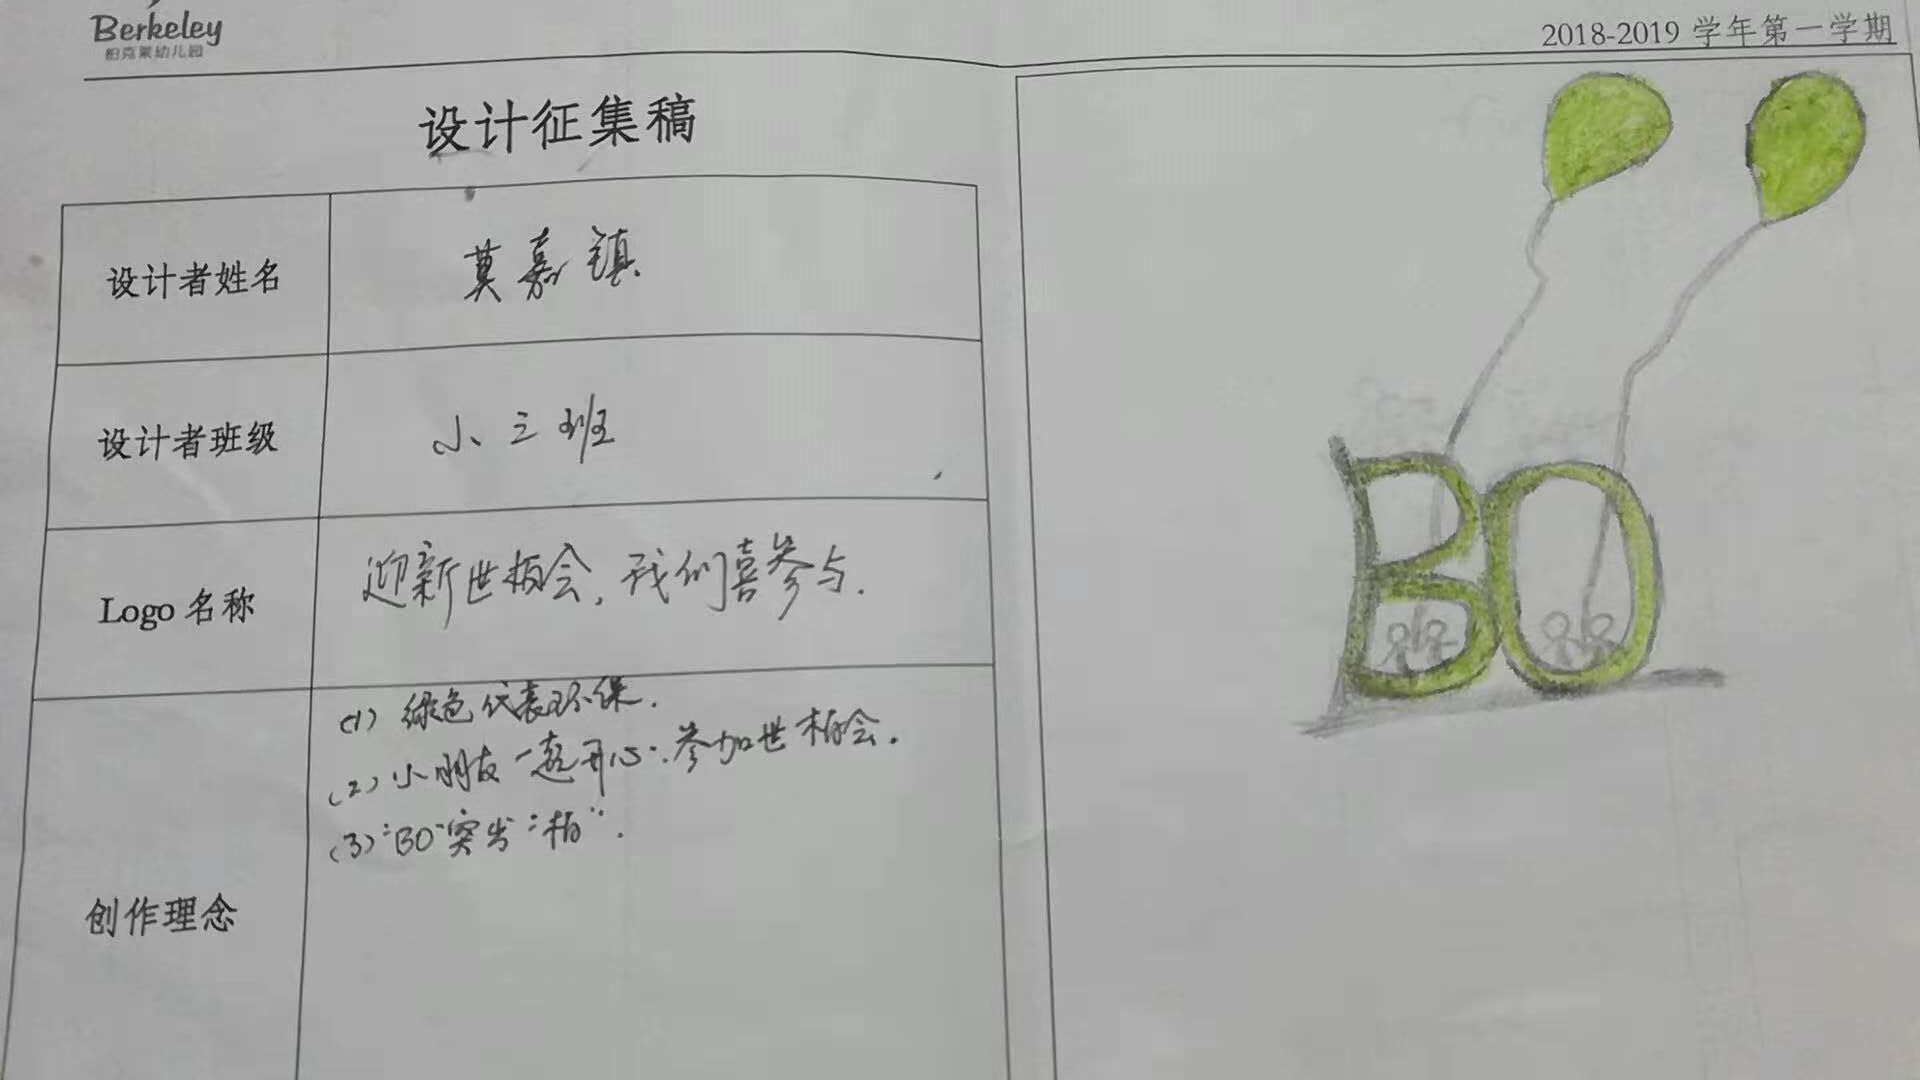 Berkeley
柏克莱幼儿园
2018-2019 学年第一学期
设计征集稿
设计者姓名
莫嘉镇
设计者班级
小三班
Logo 名称
迎新世柏会,我们喜参与.
创作理念
(1) 绿色代表环保.
(2) 小朋友一起开心.参加世柏会.
(3)"BO"突出"柏".
BO